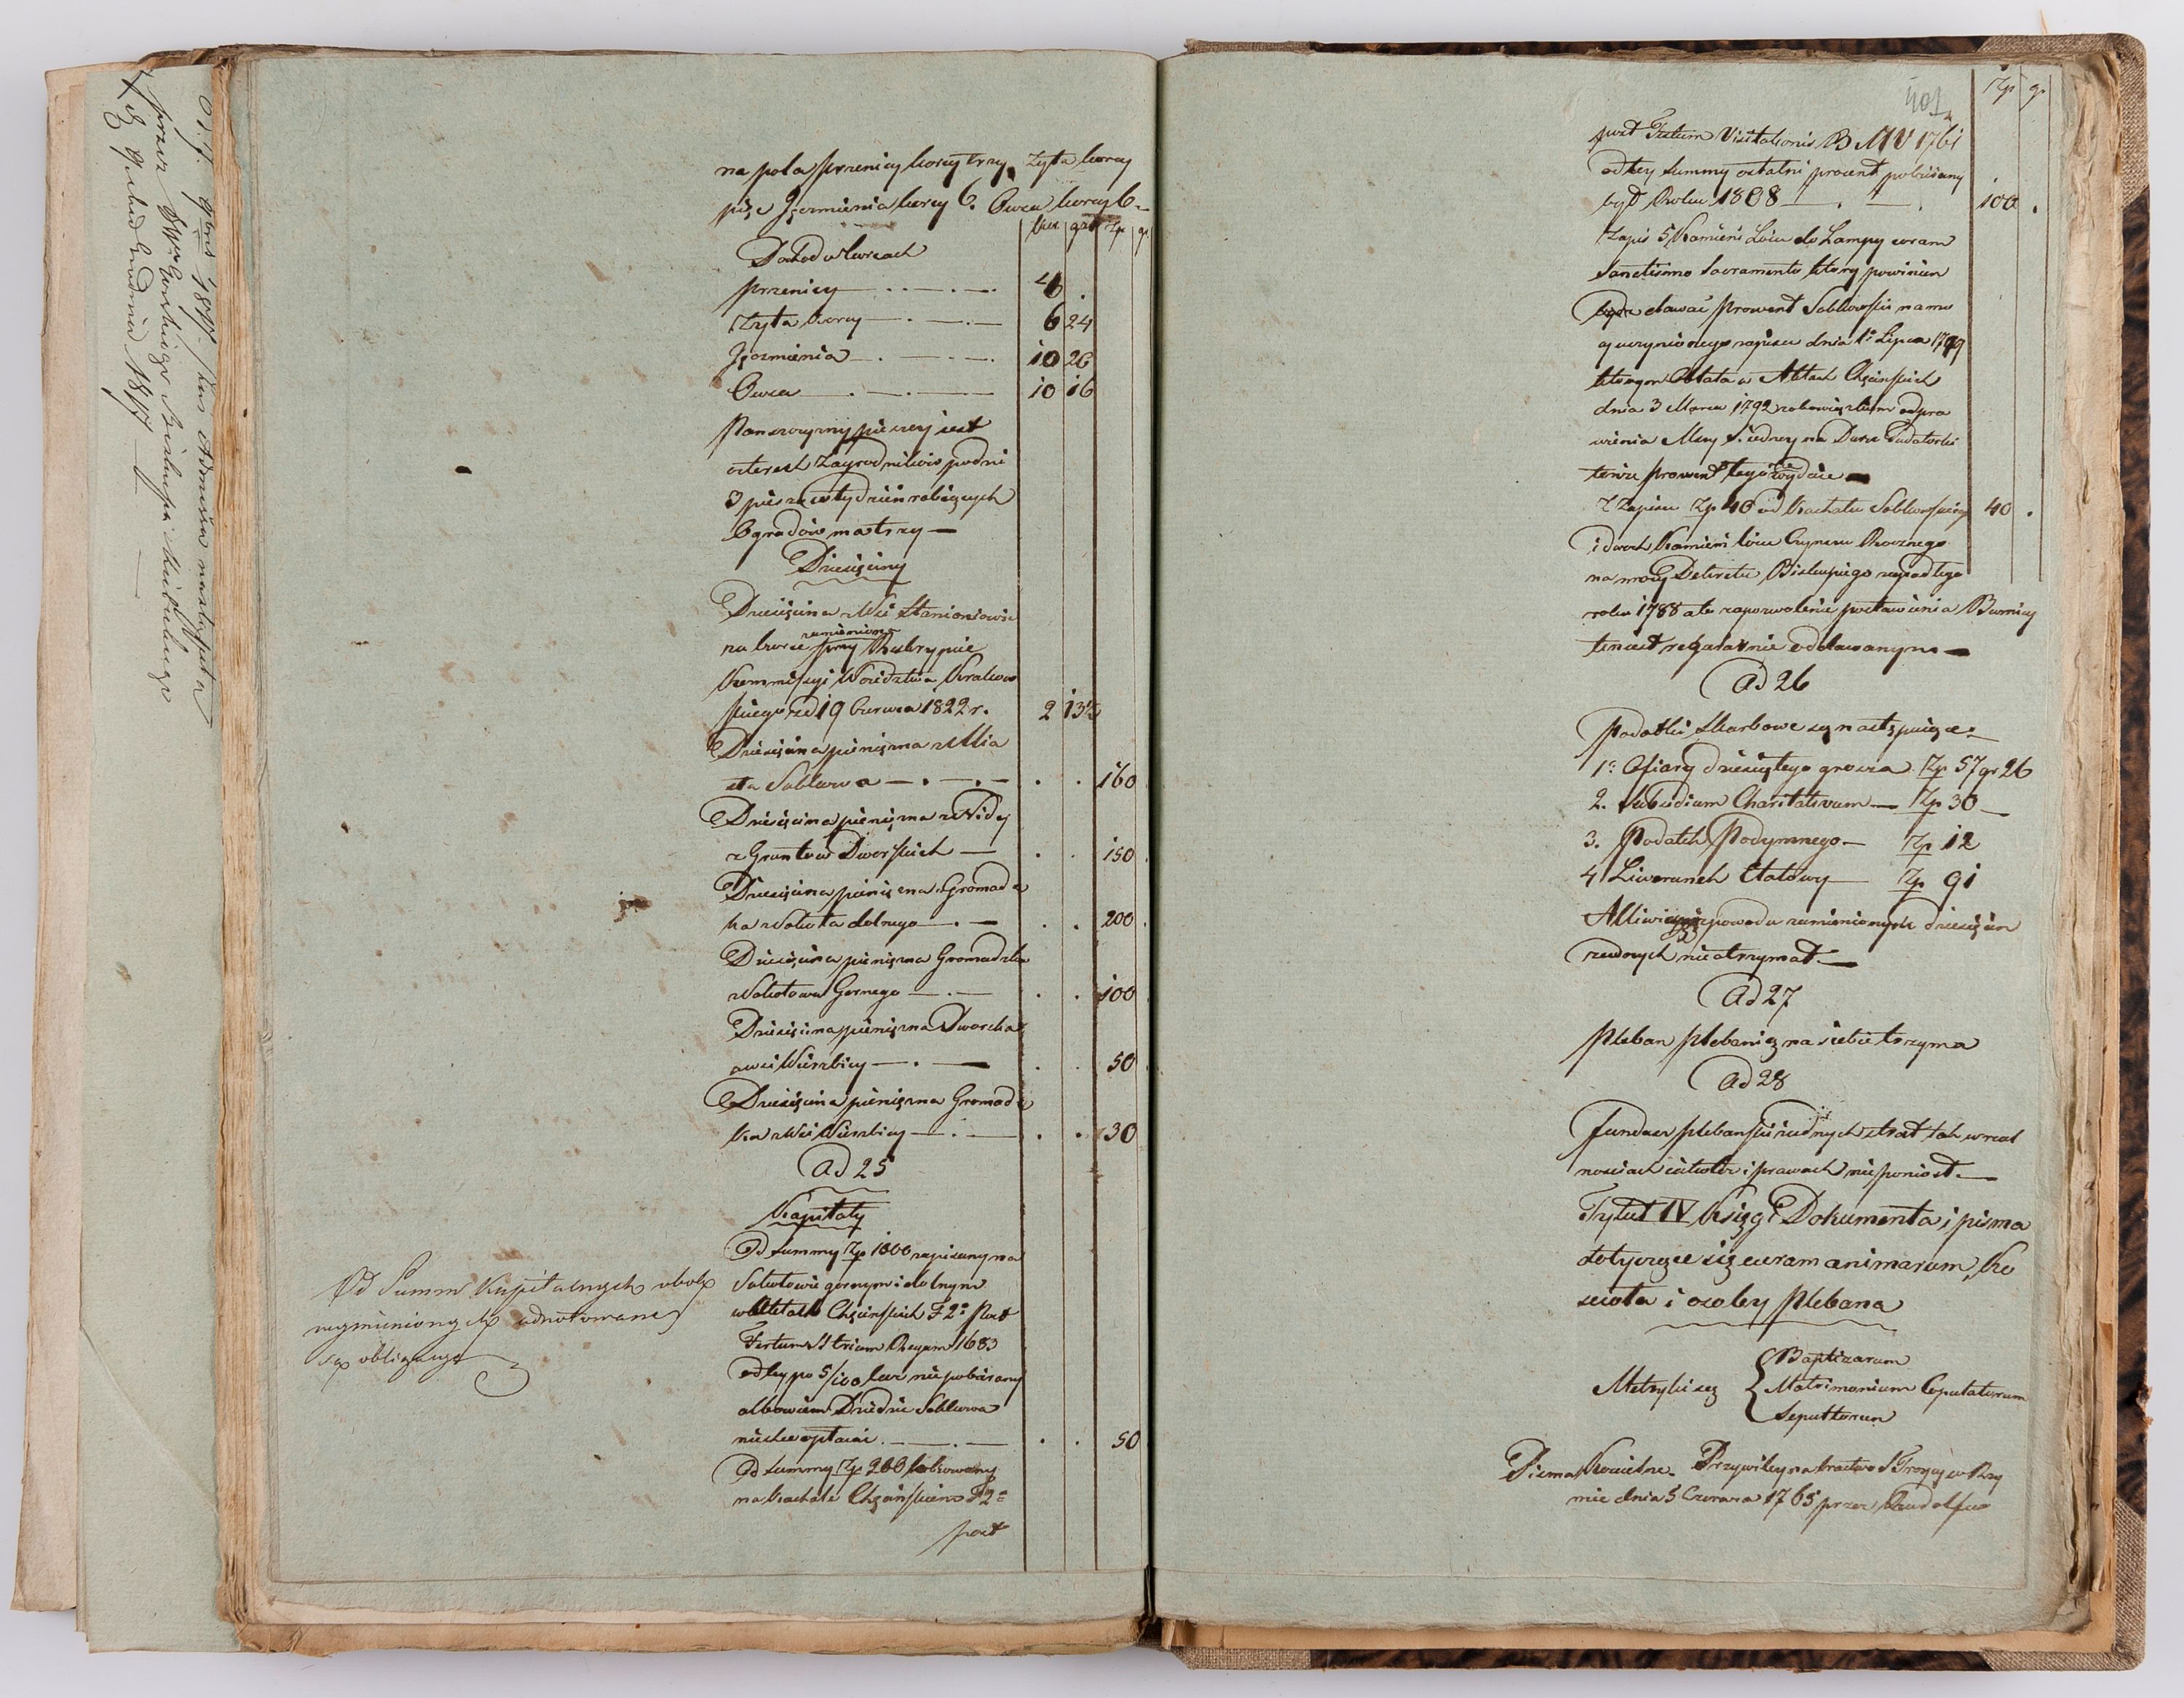 na pola przenicy korcy trzy, żyta korcy
pięć Jęczmienia korcy 6. Owsa korcy 6.
kor. gar Zp g.
Dochod w korcach
przenicy 4 .
Żyta korcy 6 24
Jęczmienia 10 26
Owsa 10 16
Panszczyzny pieszey iest
czterech Zagrodnikow po dni
3 piesze w tydzień robiących
Ogrodów ma trzy
Dziesięciny
Dziesięcina z Wsi Staniowic
zamieniona
na korce przy Reskrypcie
Kommissyi Woiedztwa Krakow
skiego z d 19 Czerwca 1822 r. 2 13½
Dziesięcina pieniężna z Mia
sta Sobkowa . . 160
Dziesięcina pieniężna z Nidy
z Gruntow Dworskich . . 150
Dziesięcina pieniężna Gromadz
ka z Sokoła dolnego . . 200
Dziesięcina pieniężna Gromadzka
z Sokołowa Gornego . . 100
Dziesięcina pieniężna Dworska
z wsi Wierzbicy . . 50
Dziesięcina pieniężna Gromadz
ka z Wsi Wierzbicy . . 30
Ad 25
Kapitały
Od summy Zp 1000 zapisany na
Sokołowie gornym i dolnym
w Aktach Chęcińskich F 2º Post
Festum S trium Regum 1683
od tey po 5/100 lecz nie pobierany
albowiem Dziedzic Sobkowa
niechce opłacać . . 50
Od summy Zp 2000 lokowaney
na kachale Chęcińskim F 2º
post
Od Summ Kapitalnych obok
wymienionych adnotowane
są obligacye
401
Zp g.
post Festum Visitationis B M V 1761
od tey summy ostatni procent pobierany
był Roku 1808 100 .
Zapis 5 Kamieni Łoiu do Lampy coram
Sanctissimo Sacramento ktory powinien
dawać Prowent Sobkowski na mo
cy uczynionego zapisu dnia 1º Lipca
ktorego Oblata w Aktach Chęcińskich
dnia 3 Marca 1792 z obowiązkiem odpra
wienia Mszy S. iedney na Dusze Fundatorki
tenże prowent tego nie wydaie
Z Zapisu Zp 40 od Kachału Sobkowskiego 40 .
i dwoch Kamieni łoiu Czynszu Rocznego
na mocy Dekretu Biskupiego zapadłego
roku 1788 ato za pozwolenie postawienia Bużnicy
ten iest regularnie oddawanym
Ad 26
Podatki skarbowe są następuiące
1º Ofiary dziesiątego grosza Zp 57 gr 26
2. Subsidium Charitativum Zp 30
3. Podatek Podymnego Zp 12
4 Liwerunek Etatowy Zp 91
Alliwiacyi z powodu zamienionych dziesięcin
żadnych nie otrzymał
Ad 27
Pleban plebanią na siebie trzyma
Ad 28
Fundusz plebański żadnych strat tak w real
nościach iako też i prawach nie poniosł.
Tytuł IV Księgi Dokumenta i pisma
dotyczące się curam animarum, Ko
scioła i osoby Plebana
Metryki są
Baptizarum
Matrimonium Copulatorum
Sepultorum
Pisma Koscielne. Przywiley na bractwo S Troycy w Rzy
mie dnia 5 Czerwca 1765 przez Rudolfa